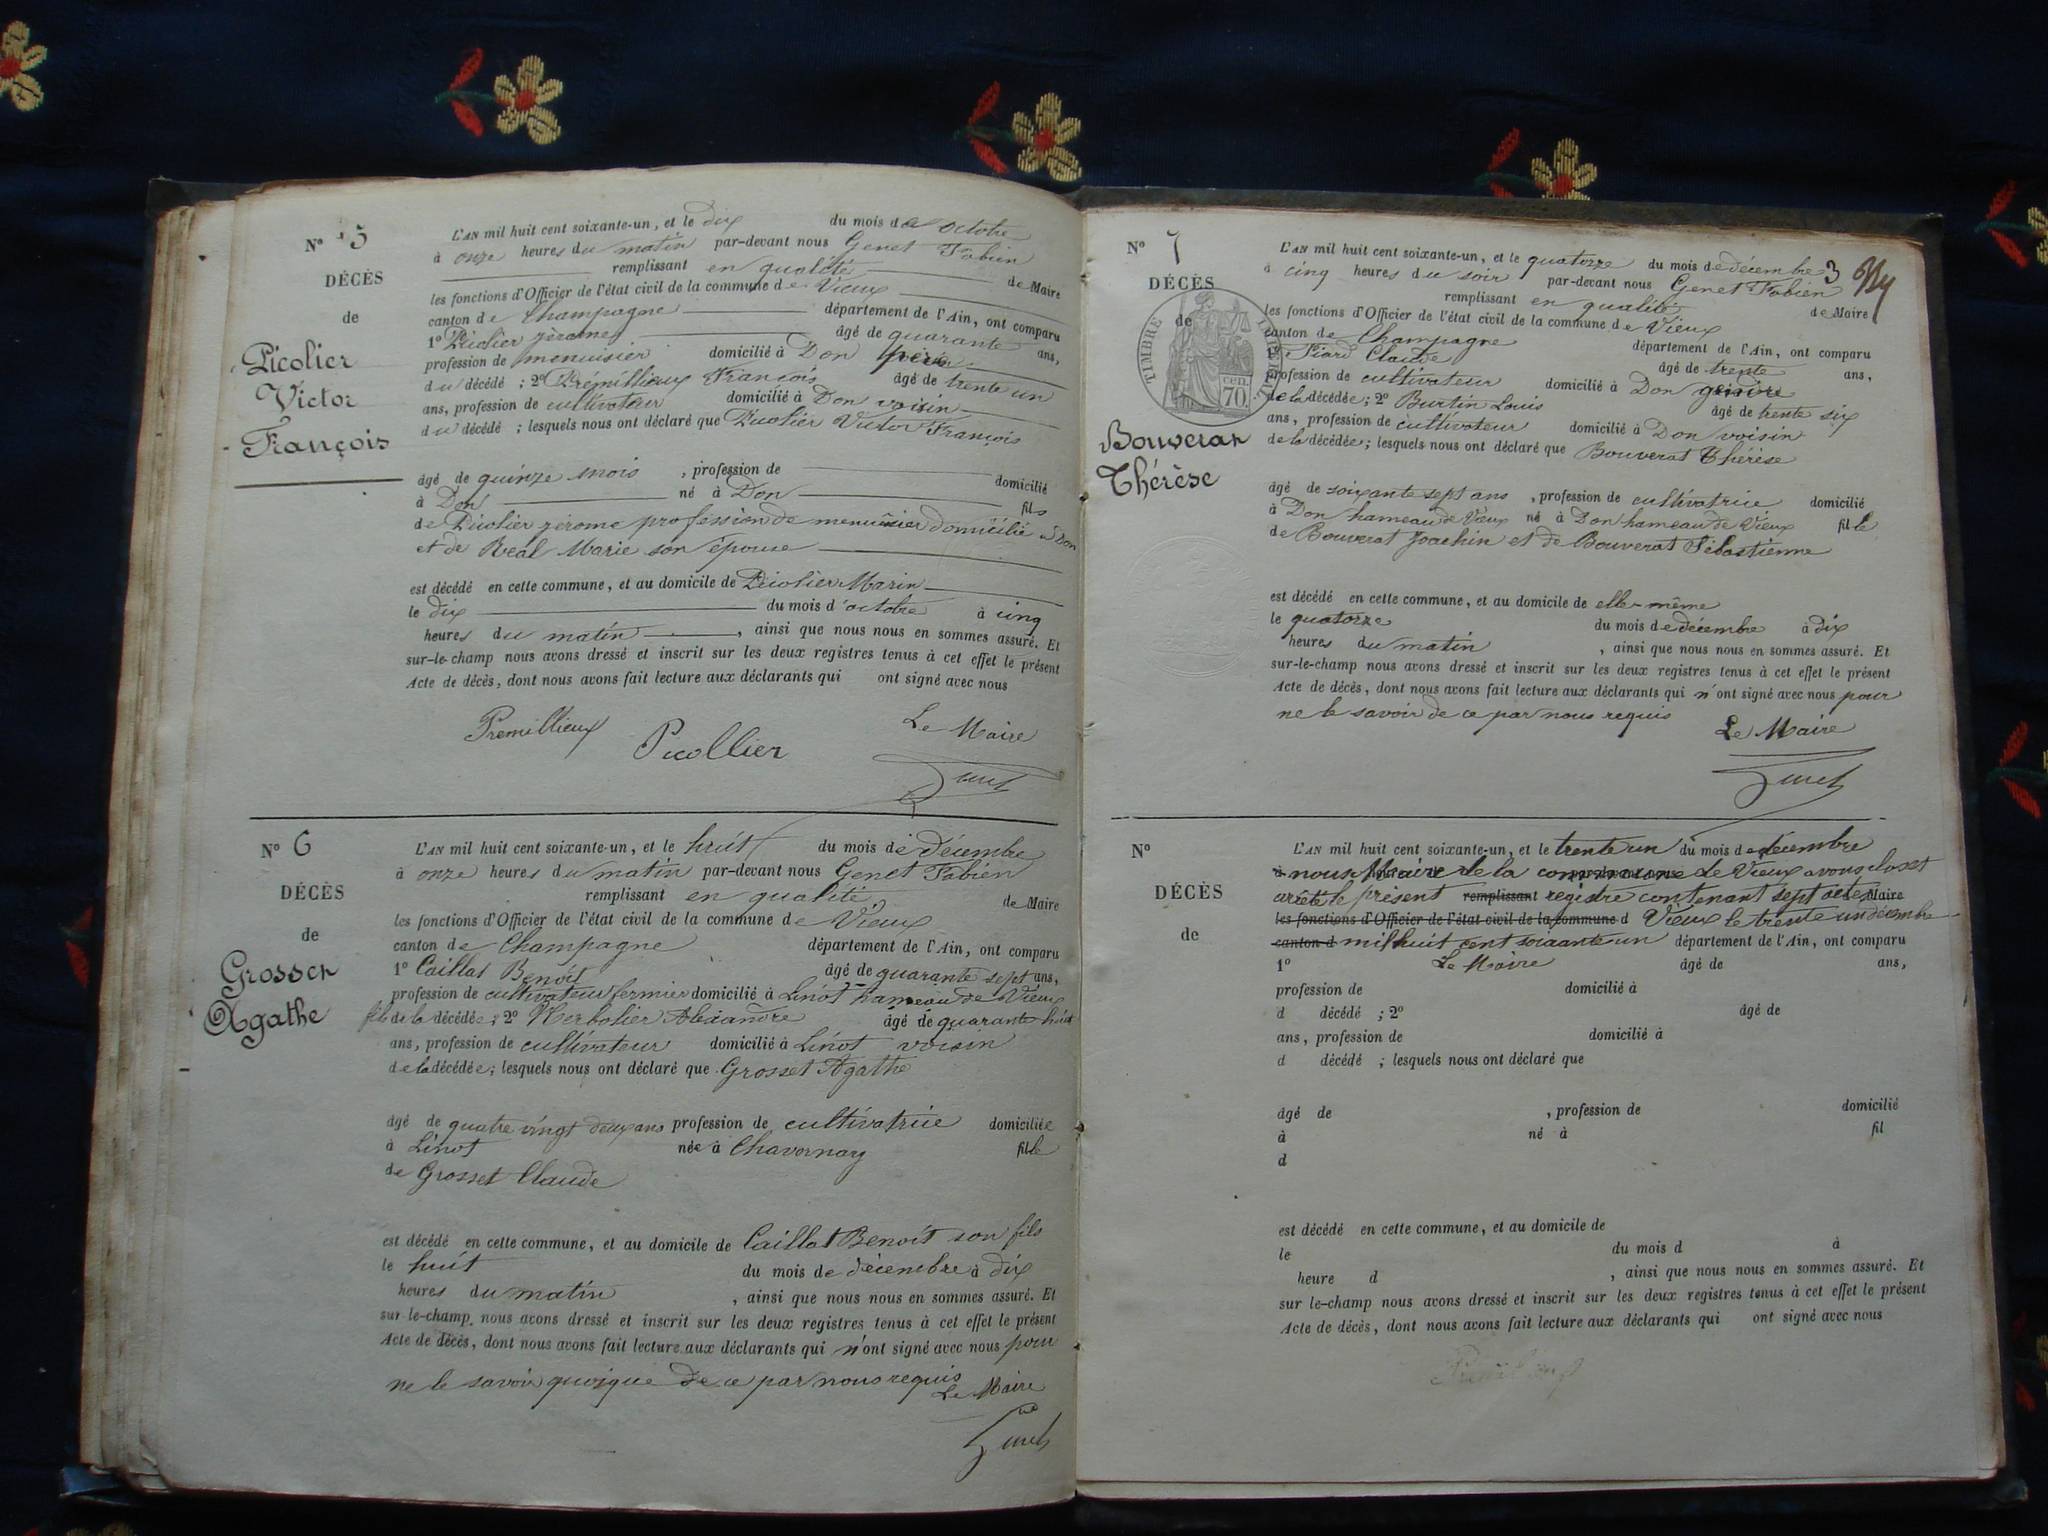 N° 5
DÉCÈS
de
Picolier
Victor
François
L'AN mil huit cent soixante-un, et le dix du mois de octobre
à onze heures du matin par-devant nous Genet Fabien
remplissant en qualité de Maire
les fonctions d'Officier de l'état civil de la commune de Vieux
canton de Champagne département de l'Ain, ont comparu
1° Picolier jérome âgé de quarante ans,
profession de menuisier domicilié à Don père
du décédé ; 2° Prémillieux François âgé de trente un
ans, profession de cultivateur domicilié à Don voisin
du décédé ; lesquels nous ont déclaré que Picolier Victor François
âgé de quinze mois , profession de domicilié
à Don né à Don fils
de Picolier jérome profession de menuisier domicilié à Don
et de Réal Marie son épouse
est décédé en cette commune, et au domicile de Picolier Marin
le dix du mois d'octobre à cinq
heures du matin , ainsi que nous nous en sommes assuré. Et
sur-le-champ nous avons dressé et inscrit sur les deux registres tenus à cet effet le présent
Acte de décès, dont nous avons fait lecture aux déclarants qui ont signé avec nous
Premillieux Picollier Le Maire
Genet
N° 6
DÉCÈS
de
Grosset
Agathe
L'AN mil huit cent soixante-un, et le huit du mois de décembre
à onze heures du matin par-devant nous Genet Fabien
remplissant en qualité de Maire
les fonctions d'Officier de l'état civil de la commune de Vieux
canton de Champagne département de l'Ain, ont comparu
1° Caillat Benoit âgé de quarante sept ans,
profession de cultivateur fermier domicilié à Linot hameau de Vieux
fils de la décédée ; 2° Herbolier Alexandre âgé de quarante huit
ans, profession de cultivateur domicilié à Linot voisin
de la décédée ; lesquels nous ont déclaré que Grosset Agathe
âgé de quatre vingt deux ans profession de cultivatrice domiciliée
à Linot née à Chavornay fille
de Grosset Claude
est décédé en cette commune, et au domicile de Caillat Benoit son fils
le huit du mois de décembre à dix
heures du matin , ainsi que nous nous en sommes assuré. Et
sur le-champ nous avons dressé et inscrit sur les deux registres tenus à cet effet le présent
Acte de décès, dont nous avons fait lecture aux déclarants qui n'ont signé avec nous pour
ne le savoir quoique de ce par nous requis
Le Maire
Genet
N° 7
DÉCÈS
de
TIMBRE IMPERIAL
CEN. 70
Bouverat
Thérèse
L'AN mil huit cent soixante-un, et le quatorze du mois de décembre 3
à cinq heures du soir par-devant nous Genet Fabien
remplissant en qualité de Maire
les fonctions d'Officier de l'état civil de la commune de Vieux
canton de Champagne département de l'Ain, ont comparu
1° Fiard Claude âgé de trente ans,
profession de cultivateur domicilié à Don gendre
de la décédée ; 2° Burtin Louis âgé de trente six
ans, profession de cultivateur domicilié à Don voisin
de la décédée ; lesquels nous ont déclaré que Bouverat Thérèse
âgé de soixante sept ans , profession de cultivatrice domicilié
à Don hameau de Vieux né à Don hameau de Vieux fille
de Bouverat Joachin et de Bouverat Sébastienne
est décédé en cette commune, et au domicile de elle-même
le quatorze du mois de décembre à dix
heures du matin , ainsi que nous nous en sommes assuré. Et
sur-le-champ nous avons dressé et inscrit sur les deux registres tenus à cet effet le présent
Acte de décès, dont nous avons fait lecture aux déclarants qui n'ont signé avec nous pour
ne le savoir de ce par nous requis
Le Maire
Genet
N°
DÉCÈS
de
L'AN mil huit cent soixante-un, et le trente un du mois de décembre
à nous Maire de la commune de Vieux avons clos et
arrêté le présent remplissant registre contenant sept actes de Maire
les fonctions d'Officier de l'état civil de la commune d Vieux le trente un décembre
canton d mil huit cent soixante un département de l'Ain, ont comparu
1° Le Maire âgé de ans,
profession de domicilié à
d décédé ; 2° âgé de
ans, profession de domicilié à
d décédé ; lesquels nous ont déclaré que
âgé de , profession de domicilié
à né à fil
d
est décédé en cette commune, et au domicile de
le du mois d à
heure d , ainsi que nous nous en sommes assuré. Et
sur le-champ nous avons dressé et inscrit sur les deux registres tenus à cet effet le présent
Acte de décès, dont nous avons fait lecture aux déclarants qui ont signé avec nous